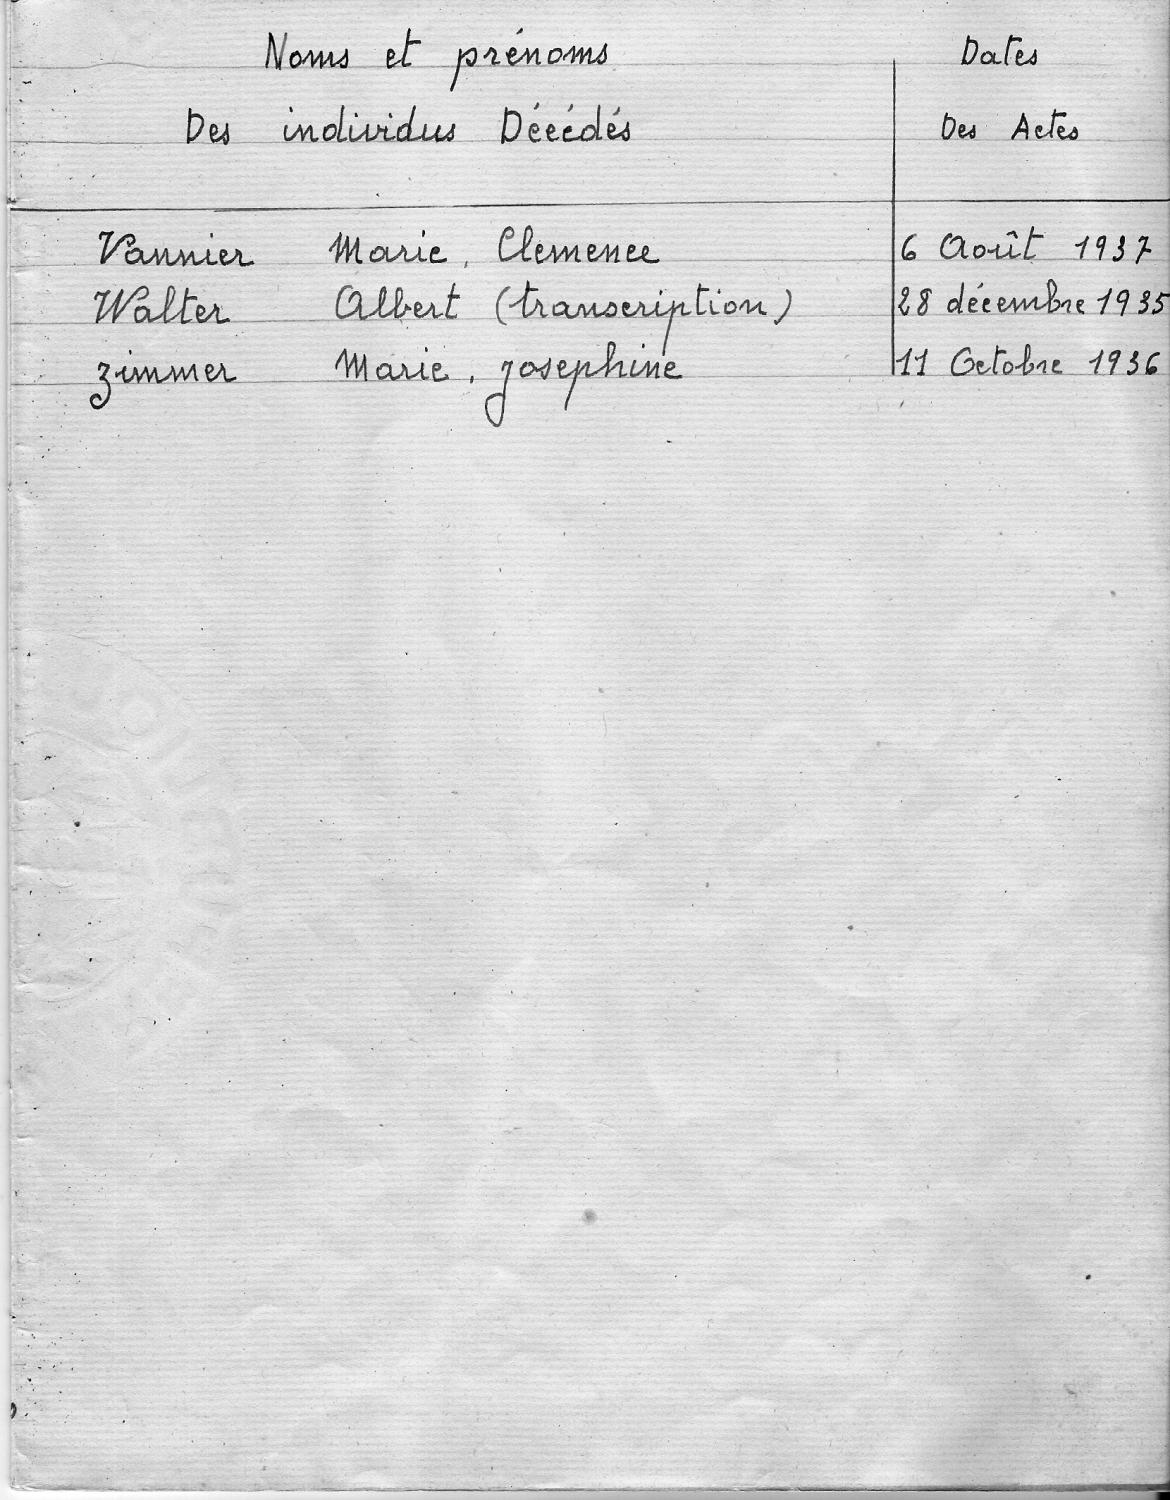 Noms et prénoms Dates
Des individus Décédés Des Actes
Vannier Marie, Clemence 6 Août 1937
Walter Albert (transcription) 28 décembre 1935
zimmer Marie, josephine 11 Octobre 1936